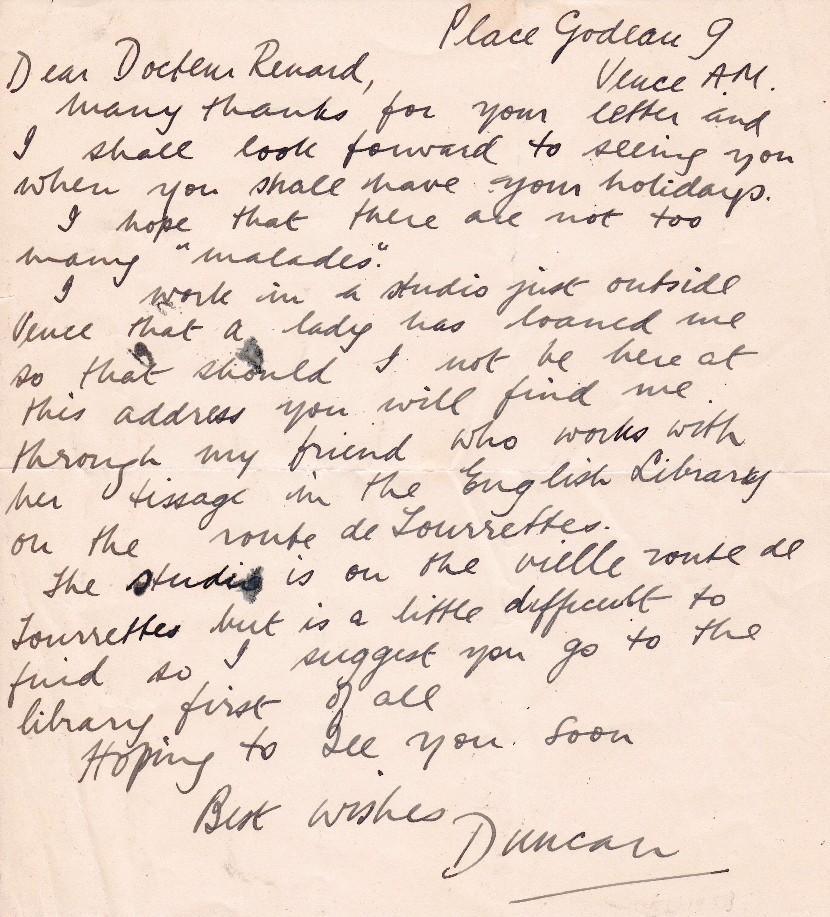 Place Godeau 9
Dear Docteur Renard,
Vence A.M.
many thanks for your letter and
I shall look forward to seeing you
when you shall have your holidays.
I hope that there are not too
many "malades".
I work in a studio just outside
Vence that a lady has loaned me
so that should I not be here at
this address you will find me
through my friend who works with
her tissage in the English Library
on the route de Tourrettes.
The studio is on the vielle route de
Tourrettes but is a little difficult to
find so I suggest you go to the
library first of all
Hoping to see you soon
Best wishes
Duncan